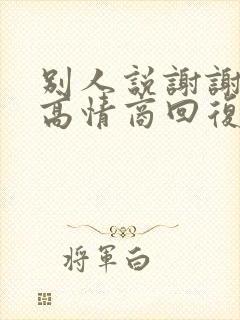 别人説謝謝
高情商回復
将軍白